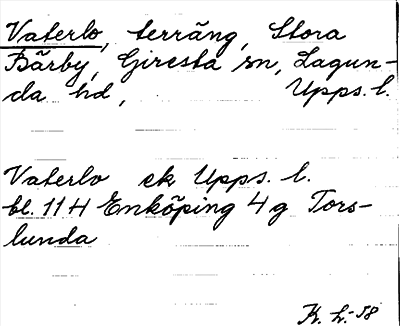 Vaterlo, terräng, Stora
Bärby, Giresta sn, Lagun-
da hd, Upps. l.
Vaterlo ek Upps. l.
bl. 11 H Enköping 4 g Tors-
lunda
K. h. -58